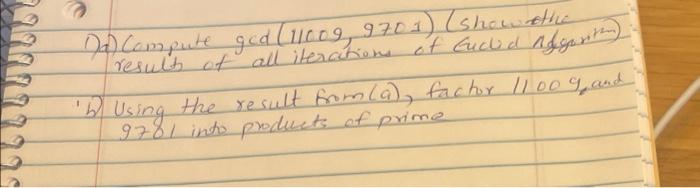 1)a) Compute gcd (11009, 9701) (show the
result of all iterations of Euclid Algorithm)
b) Using the result from (a), factor 11009, and
9701 into products of prime